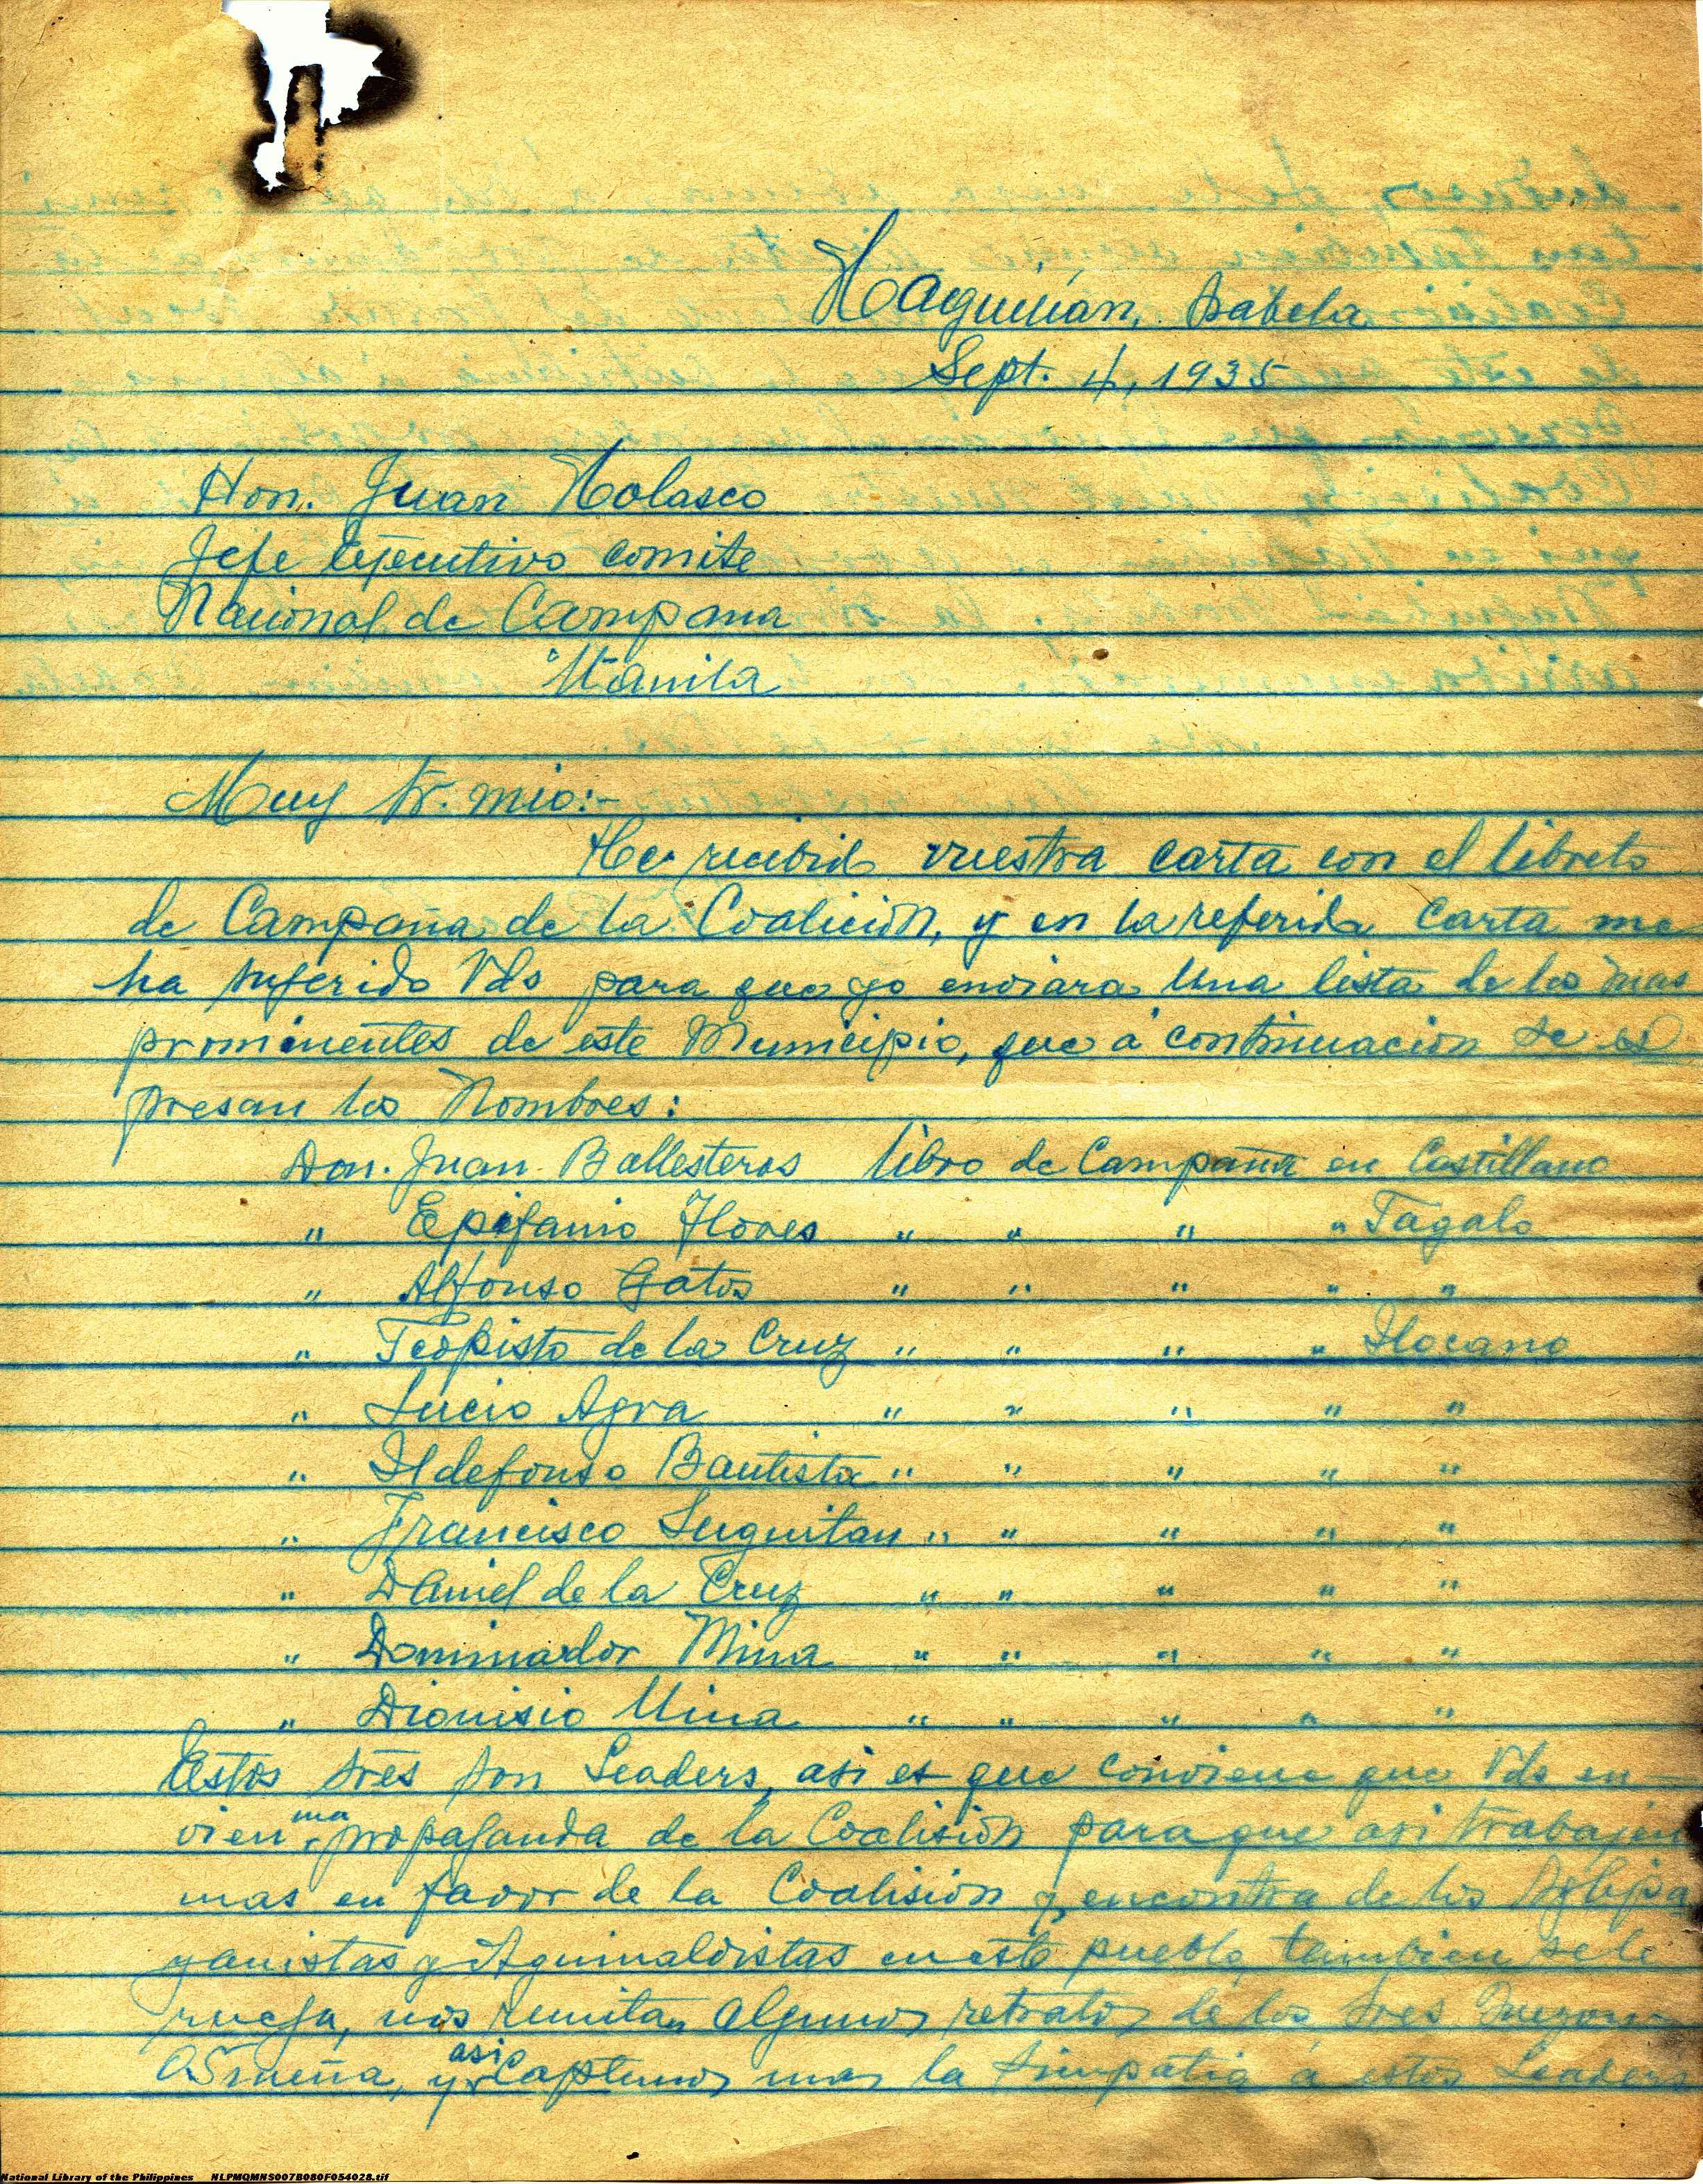 Naguilian, Isabela
Sept. 4, 1935
Hon. Juan Nolasco
Jefe Ejecutivo comite
Nacional de Campana
Manila
Muy Sr. mio:-
He recibido vuestra carta con el libreto
de Campaña de la Coalicion, y en la referida carta me
ha sugerido Vds para que yo enviara una lista de los mas
prominentes de este Municipio, que a continuacion se es
presan los Nombres:
Don. Juan Ballesteros libro de Campaña en Castillano
" Epifanio Flores " " " " Tagalo
" Alfonso Gatos " " " " "
" Teopisto de la Cruz " " " " Ilocano
" Lucio Agra " " " " "
" Ildefonso Bautista " " " " "
" Francisco Suguitan " " " " "
" Daniel de la Cruz " " " " "
" Dominador Mina " " " " "
" Dionisio Mina " " " " "
Estos sres son Leaders, asi es que conviene que Vds en-
vien propaganda de la Coalision para que asi trabajen
mas en favor de la Coalision y encontra de los Aglipa
yanistas y Aguinaldistas en este pueblo, tambien se le
ruega, nos remitan algunos retratos de los Sres Quezon-
Osmeña, y asi captemos mas la simpatia a estos Leaders
National Library of the Philippines NLPMQMNS007B080F054028.tif